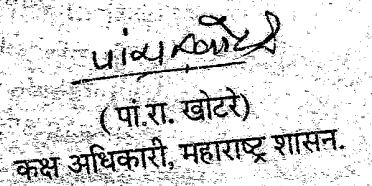 (पां.रा. खोटरे)
कक्ष अधिकारी, महाराष्ट्र शासन.